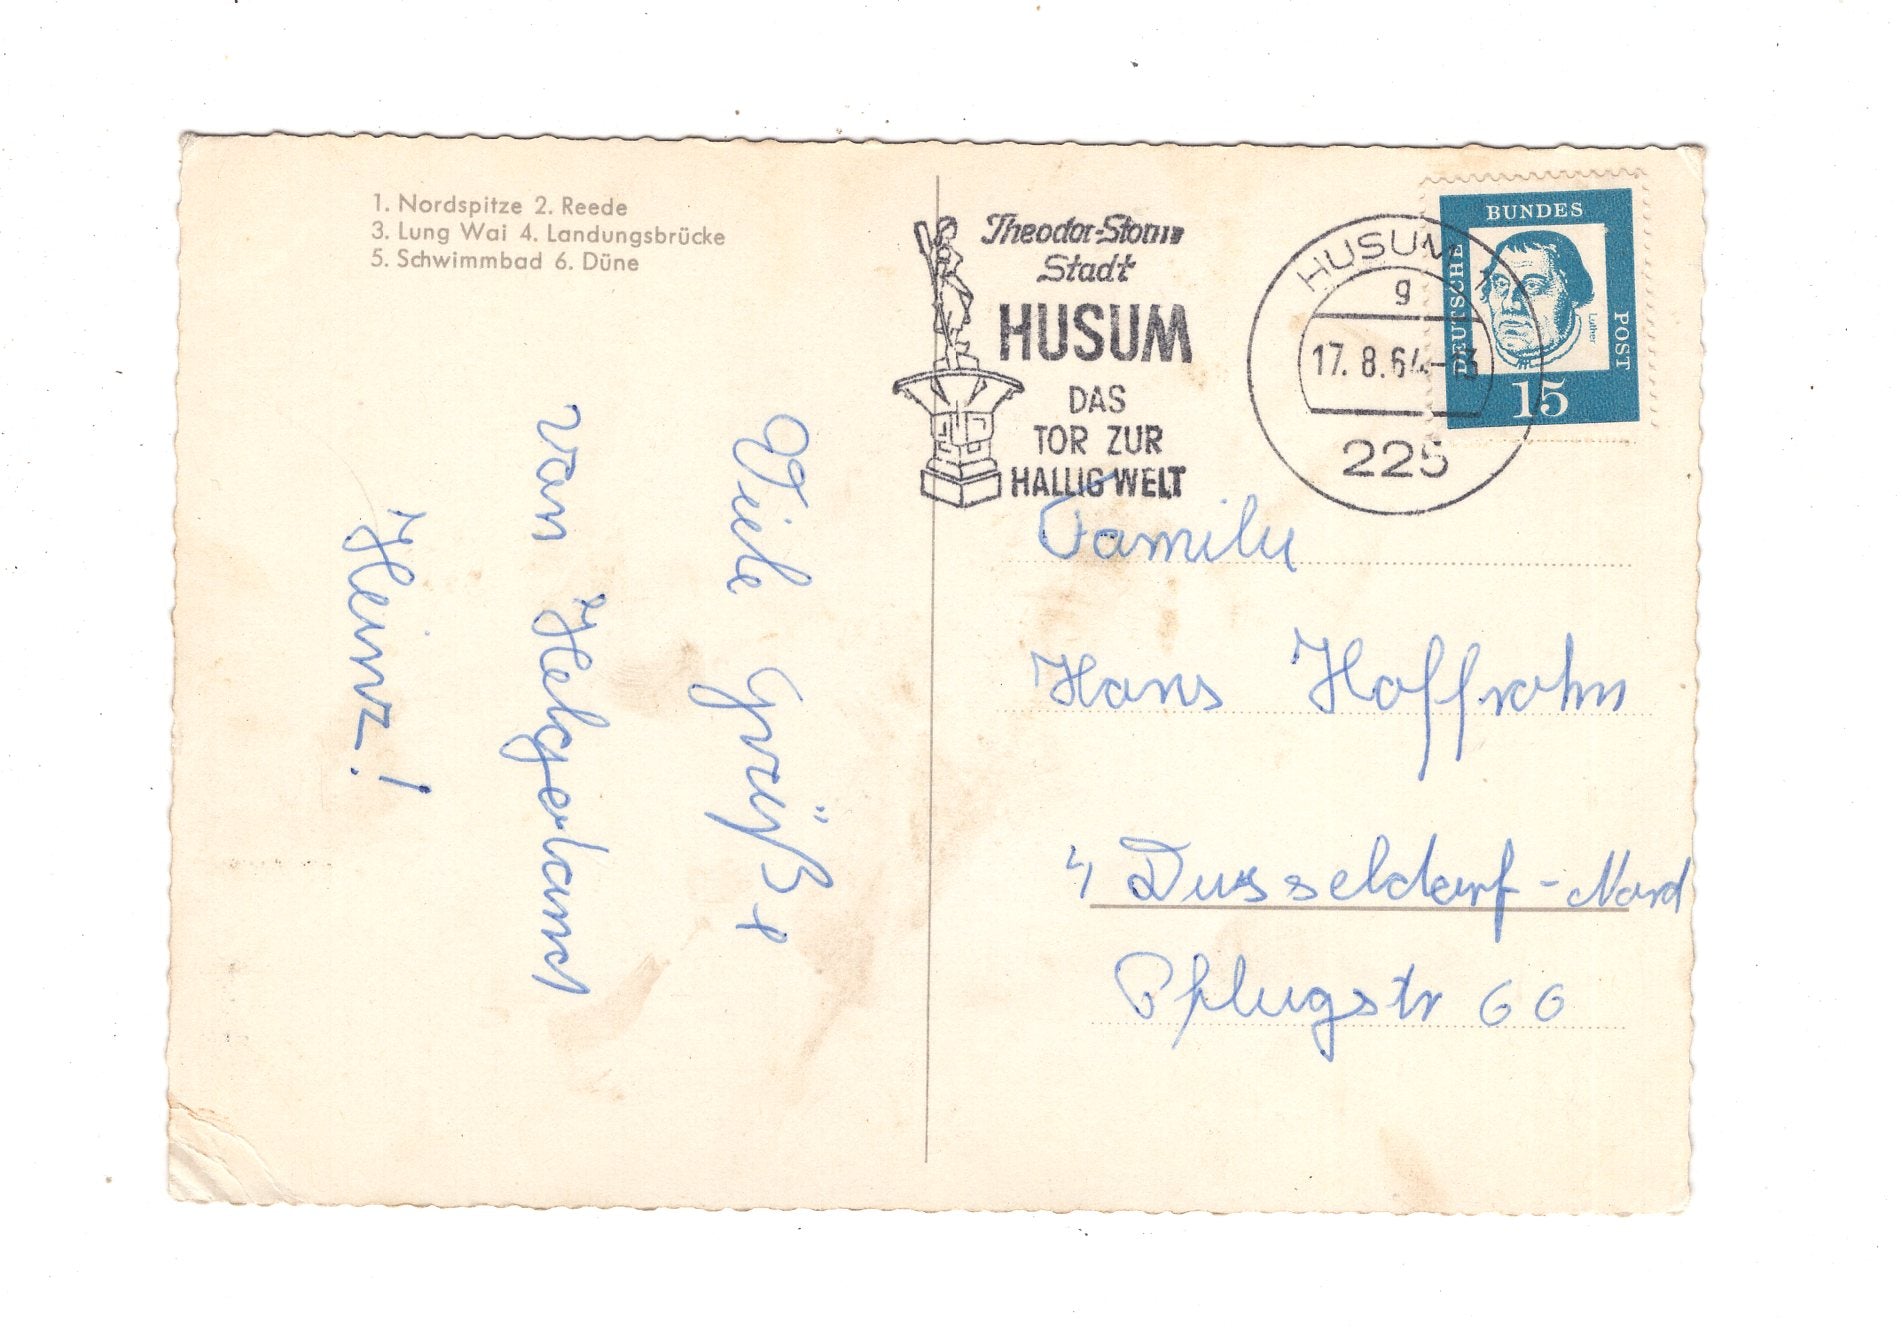 1. Nordspitze 2. Reede
3. Lung Wai 4. Landungsbrücke
5. Schwimmbad 6. Düne
Viele Grüße
von Helgoland
Heinz!
Theodor-Storm
Stadt
HUSUM
DAS
TOR ZUR
HALLIG WELT
HUSUM 1
g
17. 8. 64-13
225
BUNDES
DEUTSCHE
POST
Luther
15
Familie
Hans Hoffrohn
4 Dusseldorf-Nord
Pflugstr 60